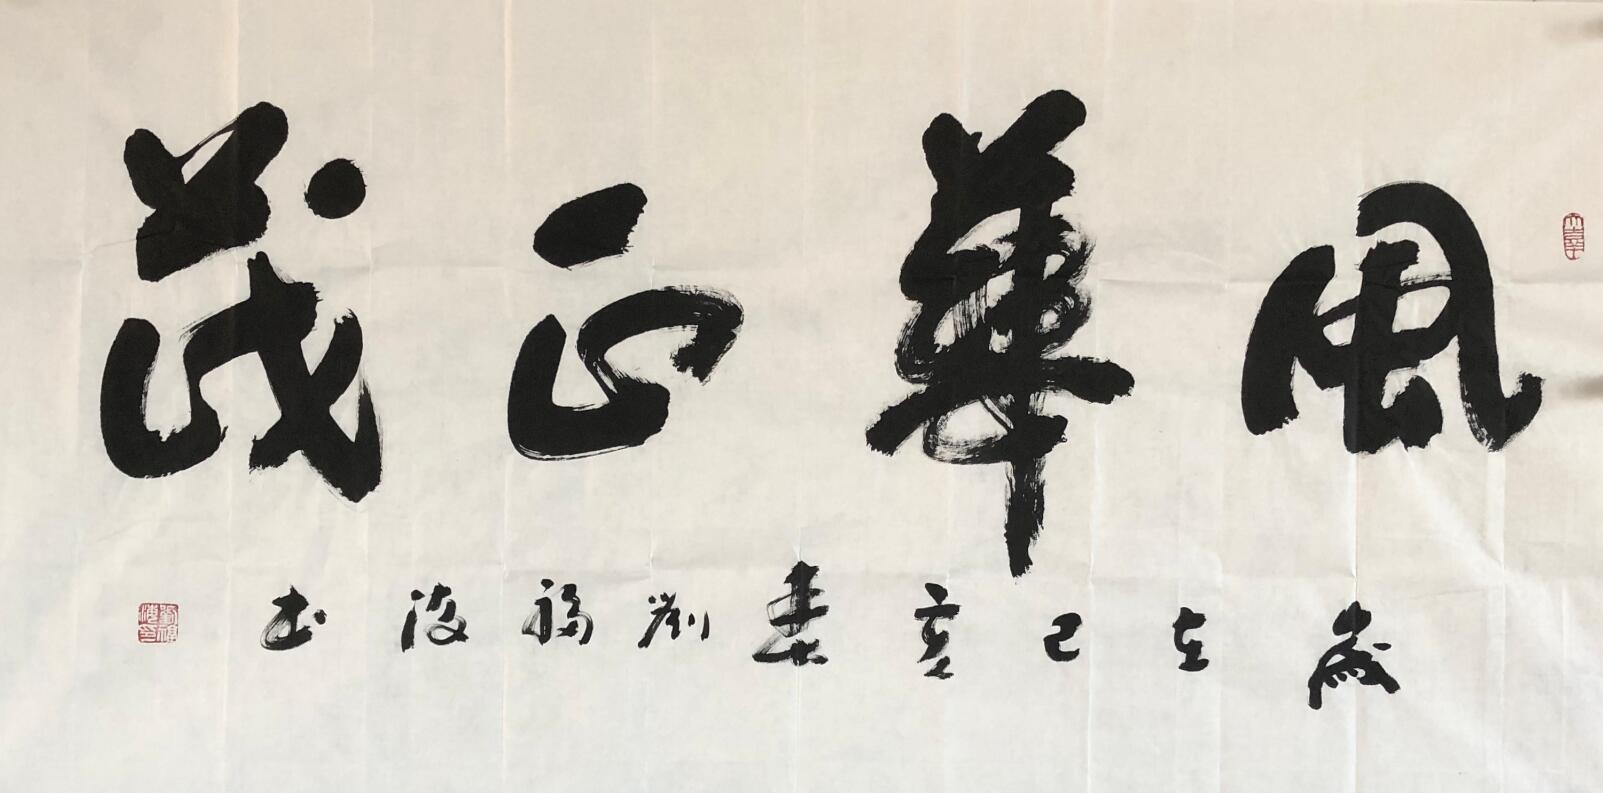 風華正茂
歲在己亥春劉福海書